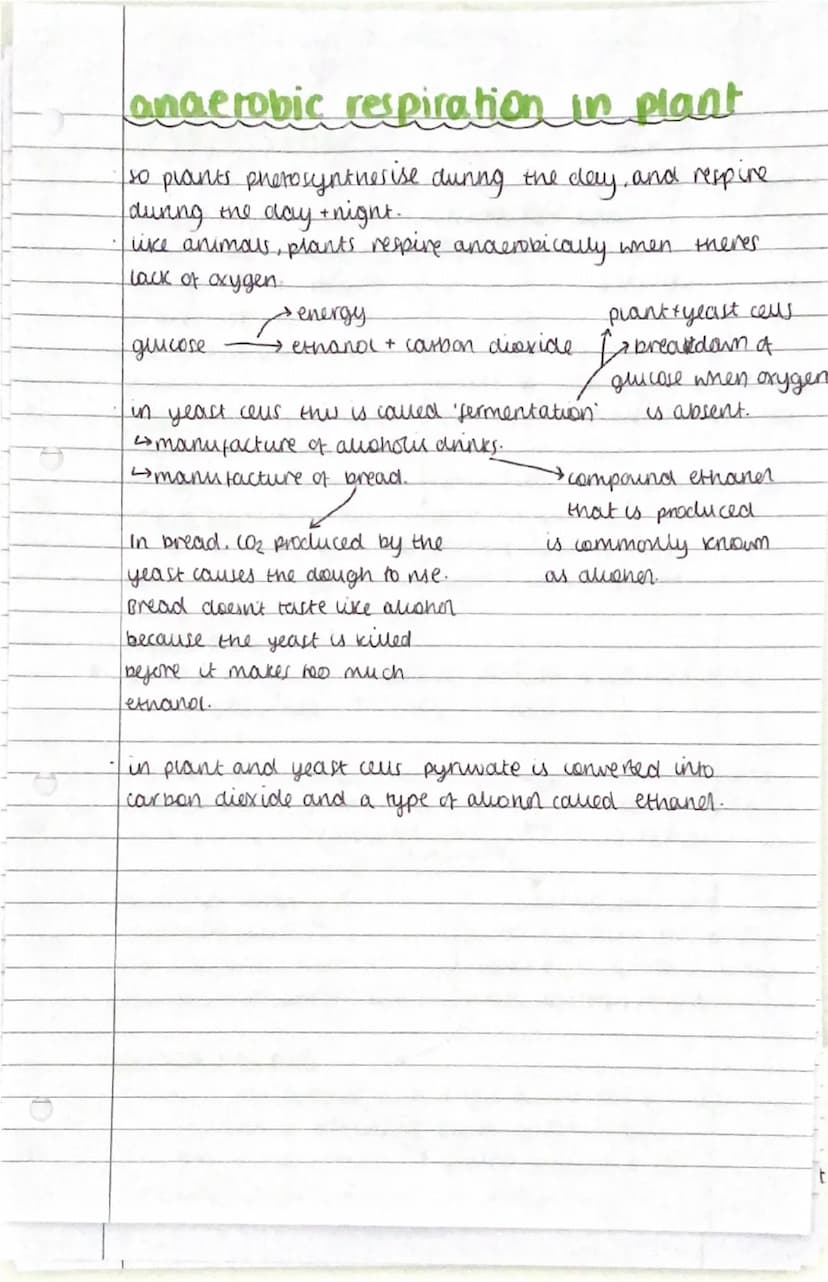 anaerobic respiration in plant
so plants photosynthesise during the day, and respire
during the day + night.
like animals, plants respire anaerobically when theres
lack of oxygen.
→ energy
glucose → ethanol + carbon dioxide
plant + yeast cells
→ breakdown of
glucose when oxygen
is absent.
in yeast cells this is called 'fermentation'
↳ manufacture of alcoholic drinks.
↳ manufacture of bread.
→ compound ethanol
that is produced
is commonly known
as alcohol.
In bread, CO2 produced by the
yeast causes the dough to rise.
Bread doesn't taste like alcohol
because the yeast is killed
before it makes too much
ethanol.
· in plant and yeast cells pyruvate is converted into
carbon dioxide and a type of alcohol called ethanol.